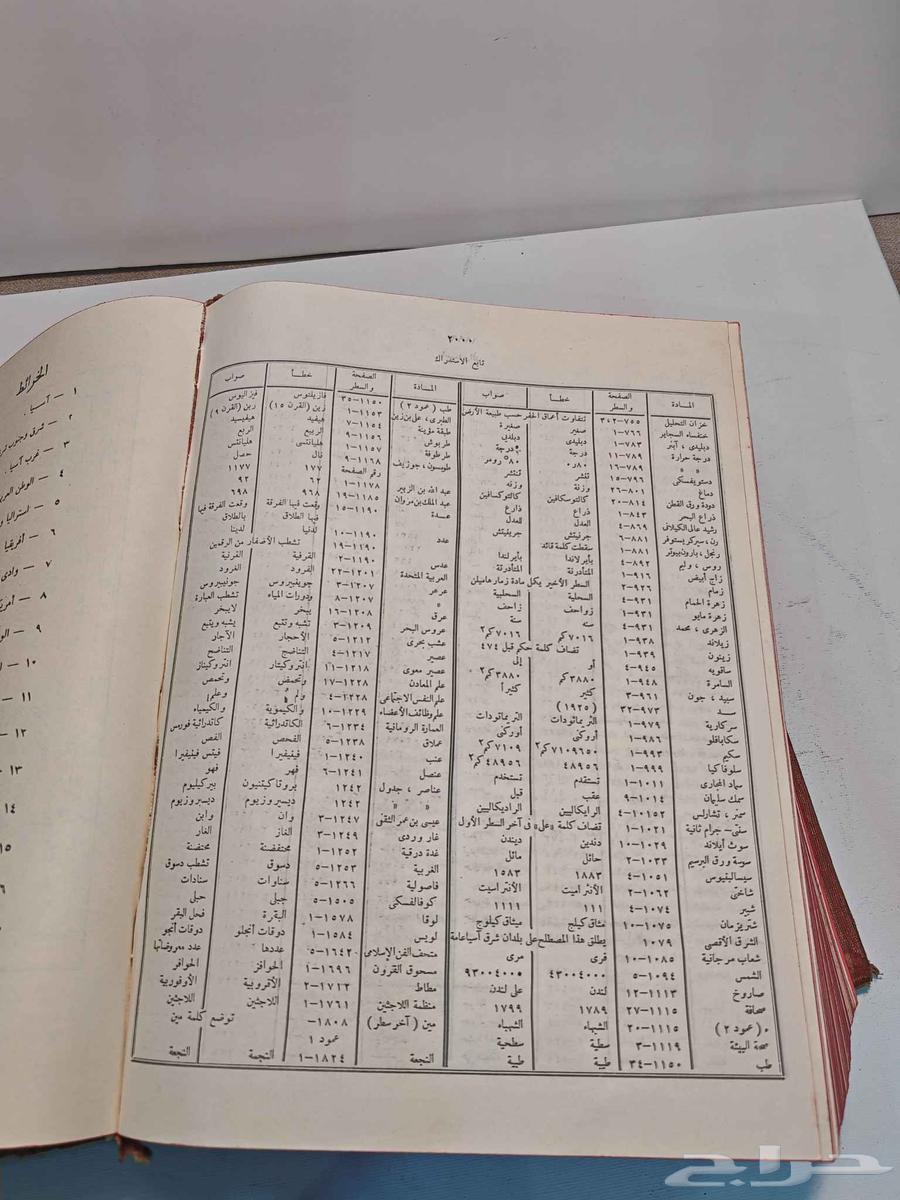 ٢٠٠٠
تابع الاستدراك
المادة الصفحة والسطر خطأ صواب
خزان التحليل ٧٥٥-٣٠٢ تتفاوت أعماق الحفر حسب طبيعة الأرض
خنفساء السجاير ٧٦٦-١ صفير صفيرة
دبليدى ، آبتر ٧٨٣-١ دبليدى دبلدين
درجة حرارة ٧٨٩-١١ درجة درجة
» » ٧٨٩-١١
دستويفسكى ٧٩٦-١٥ تقشر تنتشر
دماغ ٨٠١-٢٦ وزنة وزنه
دودة ورق القطن ٨١٤-٢٠ كالتوسكافين كالتوكسافين
ذراع البحر ٨٤٣-١ ذراع ذارع
رشيد عالى الكيلانى ٨٦٩-٤ العدل للعدل
رن، سير كريستوفر ٨٨١-٦ جرنيتش جرينيتش
رنجل ، بارون بيوتر ٨٨١-١ سقطت كلمة قائد
روس ، وليم ٨٩٢-٤ بأير لاندا بأيرلندا
زاج أبيض ٩١٦-١ المتأدرته المتأدرتة
زمام ٩٢٦-٢ السطر الأخير يكمل مادة زمار هاميلن
زهرة الحمام ٩٣١-٤ السحلية السحلبية
زهرة مايو ٩٣١-١ زواحف زاحف
الزهرى ، محمد ٩٣١-٤ سنه سنة
زيلاند ٩٣٨-١ ٧٠١٦ كم ٧٠١٦ كم٢
زيتون ٩٣٩-١ تضاف كلمة حكم قبل ٤٧٤
ساقويه ٩٤٥-٤ أو إلى
السامرة ٩٤٨-١ ٣٨٨٠ كم ٣٨٨٠ كم٢
سبيد ، جون ٩٦١-٣ كثير كثيراً
ســد ٩٧٣-٣٢ (١٩٢٥)
سركارية ٩٧٩-١ التربماتودات التريماتودات
سكاباقلو ٩٨٦-١ أوركنى أوركنى
سكيم ٩٩٣-١ ٧١٠٩٦٥٠ كم٢ ٧١٠٩ كم٢
سلوفاكيا ٩٩٩-١ ٤٨٩٥٦ ٤٨٩٥٦ كم٢
سماد المجارى ١٠١١-١ تستقدم تستخدم
سمك سليمان ١٠١٤-٩ عقب قبل
سمنر ، تشارلس ١٠١٥٢-٤ الرايكاليين الراديكاليين
سنتى-جرام ثانية ١٠٢١-١ تضاف كلمة «على» فى آخر السطر الأول
سوث آيلاند ١٠٢٩-١٠ دندين ديندن
سوسة ورق البرسيم ١٠٣٣-٢ حائل مائل
سيسالبفيوس ١٠٥١-٤ ١٨٨٣ ١٥٨٣
شاختى ١٠٦٢-٢ الأنتراميت الأنتراسيت
شبير ١٠٧٤-٤ ١١١ ١١١١
شتريزمان ١٠٧٥-١٠ مثاق كيلج ميثاق كيلوج
الشرق الأقصى ١٠٧٩ يطلق هذا المصطلح على بلدان شرق آسيا عامة
شعاب مرجانية ١٠٨٥-١٠ قرى مرى
الشمس ١٠٩٤-٥ ٤٣٠٠٤٠٠٠ ٩٣٠٠٤٠٠٥
صاروخ ١١١٣-١٢ لندن على لندن
صحافة ١١١٥-٢٧ ١٧٨٩ ١٧٩٩
» (عمود ٢) ١١١٥-٢٠ الشهاء الشهباء
صحة البيئة ١١١٩-٣ سطية سطحية
طب ١١٥٠-٣٤ طيبة طبية
المادة الصفحة والسطر خطأ صواب
طب (عمود ٢) ١١٥٠-٣٥ فازيلتوس فيزاليوس
الطبرى ، على بن زين ١١٥٣-١ زين (القرن ١٥) ربن (القرن ٩)
طبقة مؤينة ١١٥٤-٧ هيفيد هيفيسيد
طربوش ١١٥٦-٩ الربيع الربع
طرطوفة ١١٥٧-١ هليانتسى هليانتس
طومسون، جوزيف ١١٦٨-٩ نال حصل
رقم الصفحة ١٧٧ ١١٧٧
عبد الله بن الزبير ١١٧٨-١ ٦٢ ٩٢
عبد الملك بن مروان ١١٨٥-١٩ ٩٦٨ ٦٩٨
عـــدة ١١٩٠-١٥ وقعت فيها الفرقة وقعت الفرقة فيها
فيها الطلاق بالطلاق
عدد ١١٩٠-١٠ لدنيا لدينا
١١٩٠-١٩ تشطب الأصفار من الرقمين
عدس ١١٩٠-٢ القرفية القرنية
العربية المتحدة ١٢٠١-٢٢ الفرود القرود
عرعر ١٢٠٧-٣ جويفيرس جونيبيروس
» ١٢٠٧-٨ ودورات المياه تشطب العبارة
عرق ١٢٠٨-١٦ يبخر لا يبخر
عروس البحر ١٢٠٩-٣ تشبه وتتبع يشبه ويتبع
عشب بحرى ١٢١٢-٥ الأحجار الآجار
عصير ١٢١٧-٤ التناضج التناضح
عصير معوى ١٢١٨-١ انتروكيتار انتروكيناز
علم المعادن ١٢٢٨-١٧ وتحمض وتحميض
علم النفس الاجتماعى ١٢٢٨-٤ ولم وعلم
علم وظائف الأعضاء ١٢٢٩-١٠ والكيموية والكيمياء
العمارة الرومانية ١٢٣٤-٦ الكاتدرائية كاتدرائية فورمس
عملاق ١٢٣٨-٥ الفحص الفص
عنب ١٢٤٠-١ فينيفيرا فيتس فينيفيرا
عنصل ١٢٤١-٦ قهر فهو
عناصر ، جدول ١٢٤٢ بروتاكتنيون بيركيليوم
» » ١٢٤٢ ديسبروزيوم ديسبروزيوم
عيسى بن عمر الثقفى ١٢٤٧-٣ وان وابن
غار وردى ١٢٤٩-٣ الغاز الغار
غدة درقية ١٢٥٢-١ مختفضة مختضنة
الغربية ١٢٥٣-٥ دسوق تشطب دسوق
فاصولية ١٢٦٦-٥ سناوات سنادات
كوفالفسكى ١٥٠٥-٥ جبلى حبلى
لوقا ١٥٧٨-١ البقرة فحل البقر
لويس ١٥٨٤-١ دوقات أنجلو دوقات أنجو
متحف الفن الإسلامى ١٦٤٢-٥ عددها عدد معروضاتها
مسحوق القرون ١٦٩٦-١ الحوافز الحوافر
مطاط ١٧١٢-٢ الأفروبية الأوفوربية
منظمة اللاجئين ١٧٦١-١ اللاجئين اللاجئين
مين (آخر سطر) ١٨٠٨- عمود ١ توضع كلمة مين
النجمة ١٨٢٤-١ النجمة النجعة
الخرائط
١ - آسيا .
٢ - شرق وجنوب
٣ - غرب آسيا .
٤ - الوطن العر
٥ - استراليا و
٦ - أفريقيا
٧ - وادى
٨ - أمر
٩ - الو
١٠ -
١١ -
١٢ -
١٣
١٤
حراج